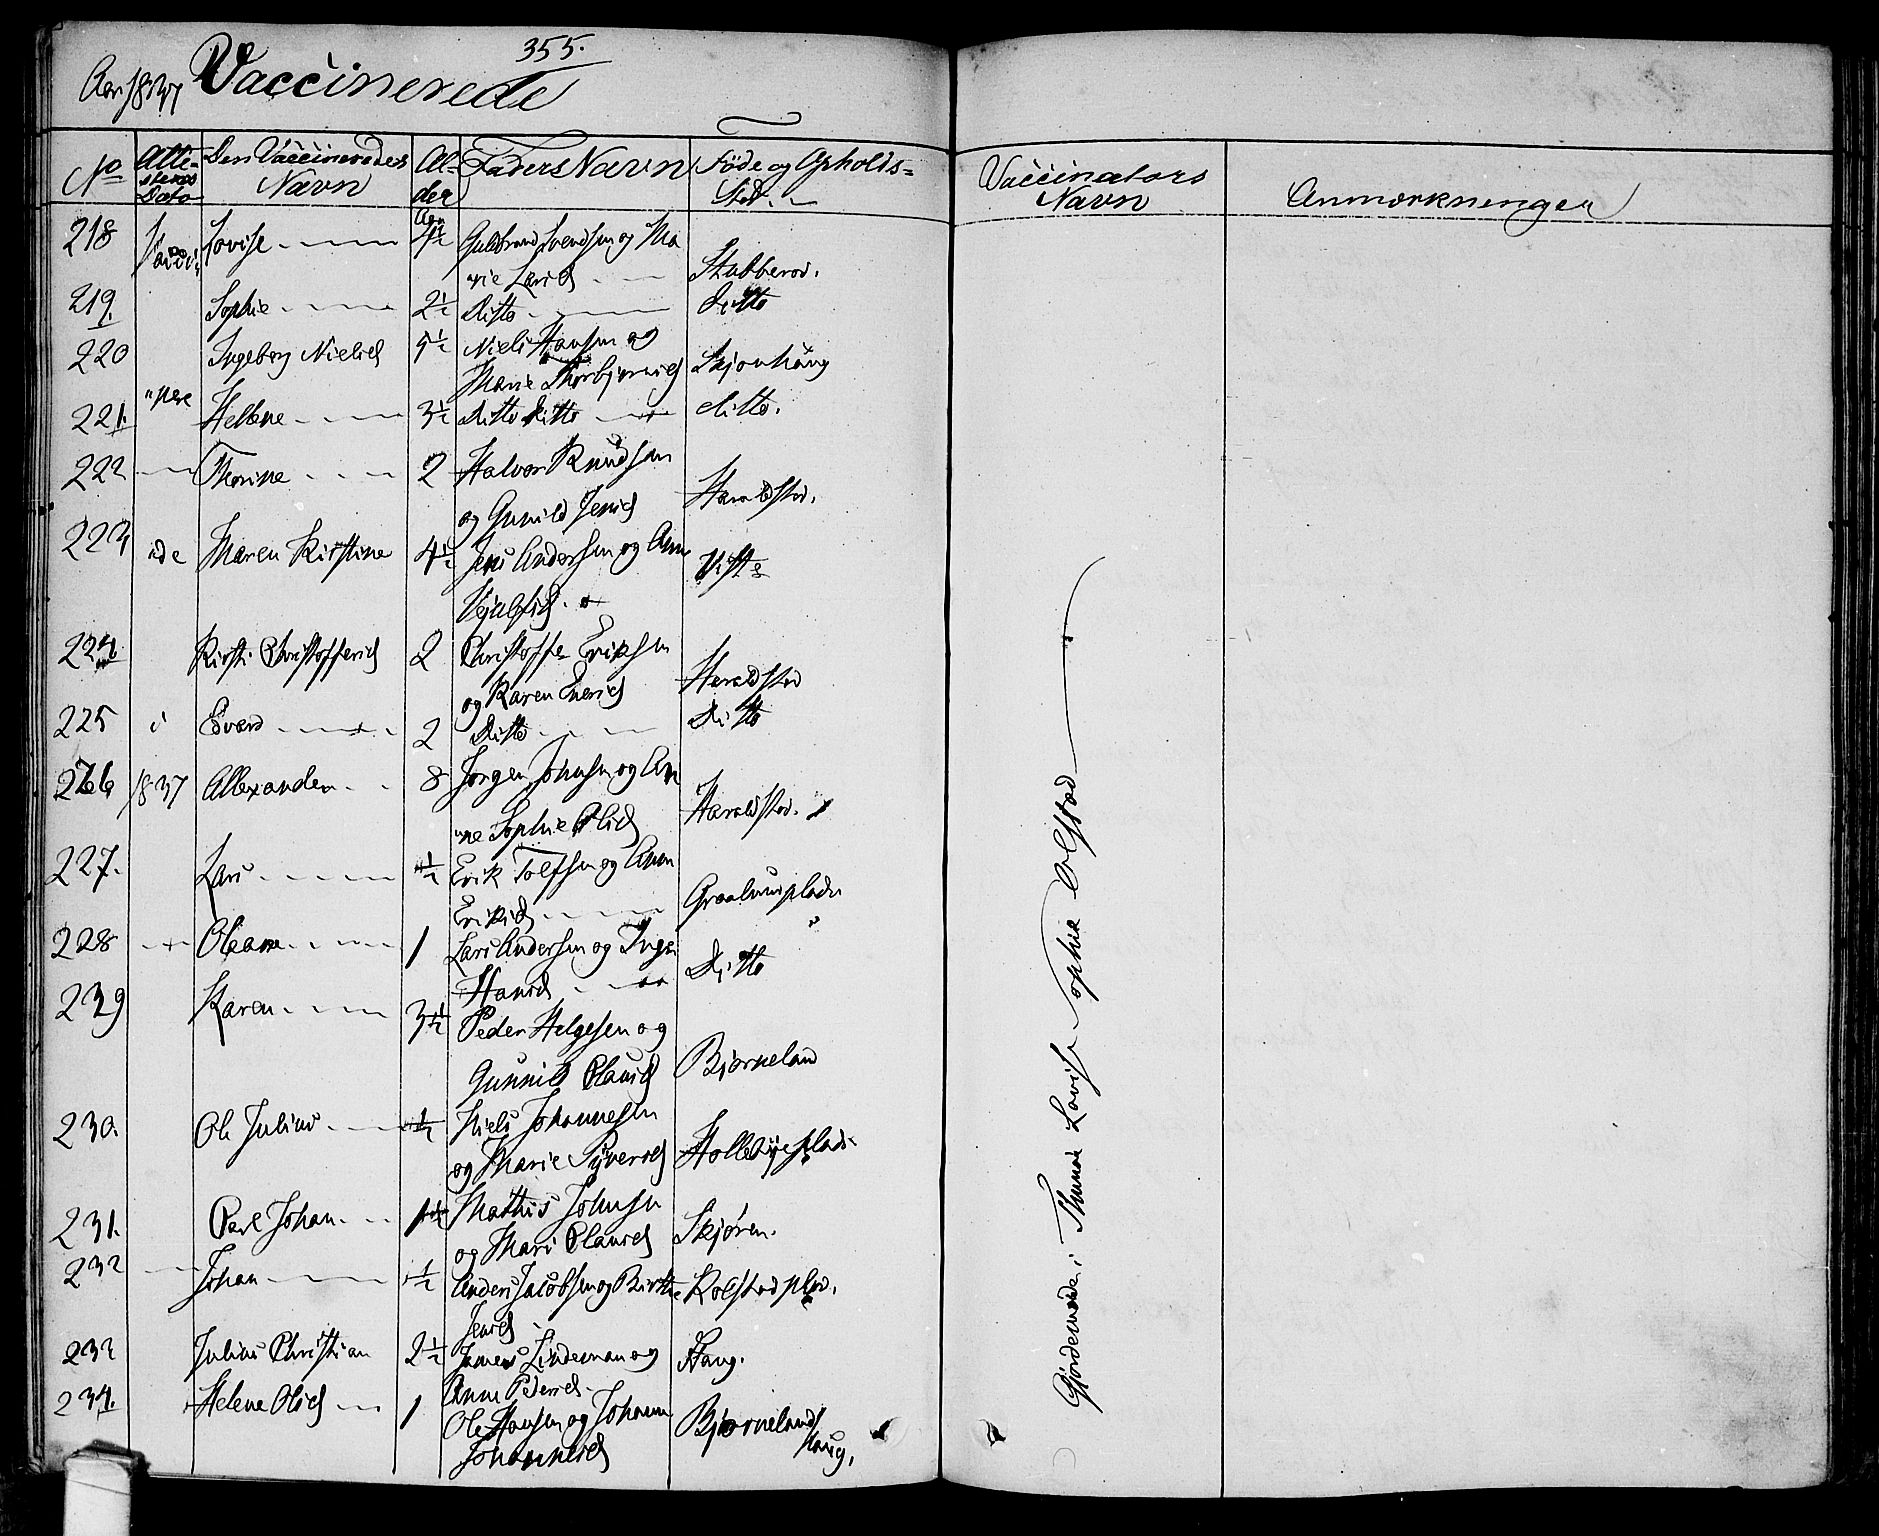 355.
Aar 1837 Vaccinerede
No Attestens Dato Den Vaccineredes Navn Alder Faders Navn Føde og Opholds= Sted. Vaccinators Navn Anmærkninger
Aar
218 Lovise 4½ Guldbrand Svendsen og Ma
rie Larsd Stubberød.
219. Sophie 2½ Ditto Ditto
220 Ingeborg Nielsd 5½ Niels Hansen og
Marie Thorbjørnsd Skjønhaug
221. Hellene 3½ Ditto Ditto ditto.
222 Thorine 2 Halvor Knudsen
og Gunild Jensd Haraldstad.
223 Maren Kirstine 4½ Jens Andersen og Ann
224. Kirsti Christoffersd 2 Christoffer Eriksen
og Karen Haraldstad
225 i Edvard 2 Ditto Ditto
226 1837 Allexander 8 Jørgen Johnsen og An
ne Sophie Olsd Haraldstad.
227. Lars ½ Erik Tolfsen og Ann
Eriksd Graalumplads
228 Oleane 1 Lars Andersen og Inge
Hansd Ditto
239 Karen 3½ Peder Helgesen og
Gunnild Olausd Bjørneland
230. Ole Julius ½ Niels Johannesen
og Marie Syversd Hollebyeplads
231. Carl Johan 1½ Mathis Johnsen
og Mari Clausd Skjøren.
232 Johan ½ Anders Jacobsen og Birthe Kolstadplad.
Jensd
233 Julius Christian 2½ Lindeman og Haug.
Anne Pedersd
234. Helene Olsd 1 Ole Hansen og Johanne
Johannesd Bjørneland
Haug.
Gjordemoder Lovise Sophie Olstad